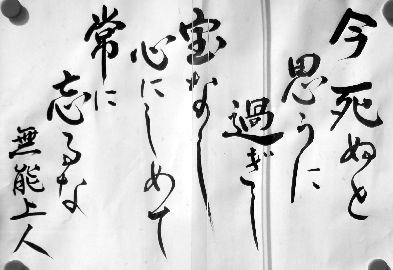 今死ぬと
思うに
過ぎし
宝なし
心にしめて
常に
忘るな
無能上人